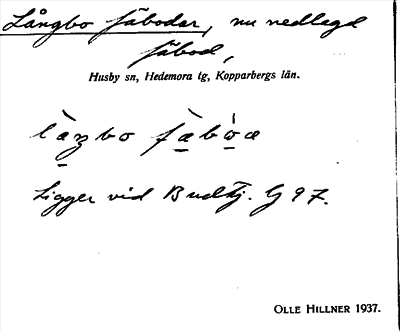 Långbo fäbodar, nu nedlagd
fäbod,
Husby sn, Hedemora tg, Kopparbergs län.
Ligger vid G 97.
OLLE HILLNER 1937.